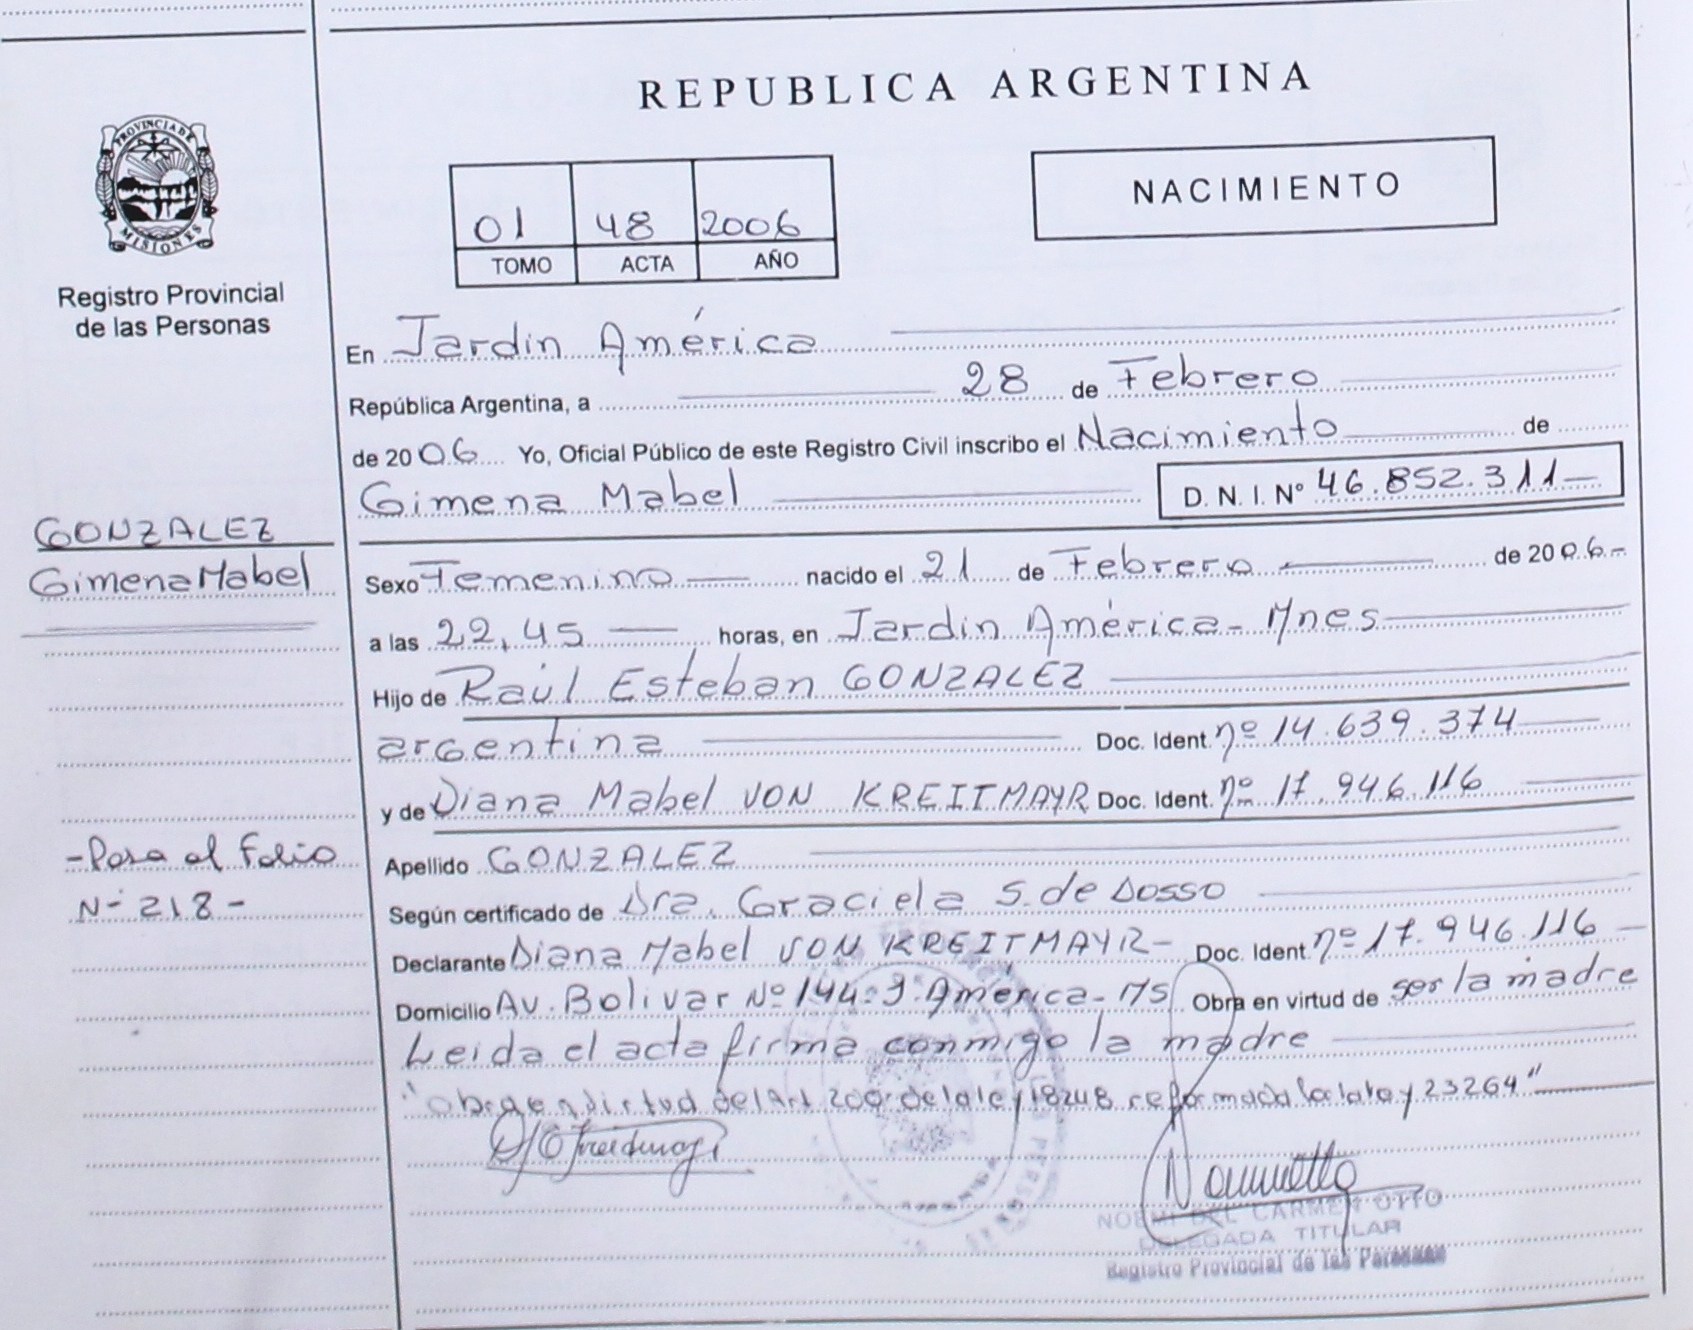 REPUBLICA ARGENTINA
PROVINCIA DE
MISIONES
Registro Provincial
de las Personas
01 48 2006
TOMO ACTA AÑO
NACIMIENTO
En Jardin América
República Argentina, a 28 de Febrero
de 2006 Yo, Oficial Público de este Registro Civil inscribo el Nacimiento de
Gimena Mabel D. N. I. Nº 46.852.311-
GONZALEZ
Gimena Mabel
Sexo Femenino nacido el 21 de Febrero de 2006-
a las 22,45 horas, en Jardin América- Mnes
Hijo de Raúl Esteban GONZALEZ
argentina Doc. Ident. nº 14.639.374
y de Diana Mabel VON KREITMAYR Doc. Ident. nº 17.946.116
-Pasa al Folio
Nº 218-
Apellido GONZALEZ
Según certificado de Dra. Graciela S. de Dosso
Declarante Diana Mabel VON KREITMAYR- Doc. Ident. nº 17.946.116
Domicilio Av. Bolivar Nº 144- J. América- MS Obra en virtud de ser la madre
Leida el acta firma conmigo la madre
"obra en virtud del Art 200 de la ley 18248 reformada la ley 23264"
NOEMI DEL CARMEN OTTO
DELEGADA TITULAR
Registro Provincial de las Personas